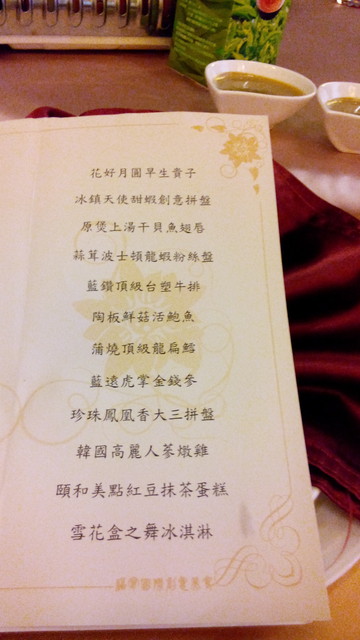 花好月圓早生貴子
冰鎮天使甜蝦創意拼盤
原煲上湯干貝魚翅唇
蒜茸波士頓龍蝦粉絲盤
藍鑽頂級台塑牛排
陶板鮮菇活鮑魚
蒲燒頂級龍扁鱈
藍遠虎掌金錢參
珍珠鳳凰香大三拼盤
韓國高麗人蔘燉雞
頤和美點紅豆抹茶蛋糕
雪花盒之舞冰淇淋